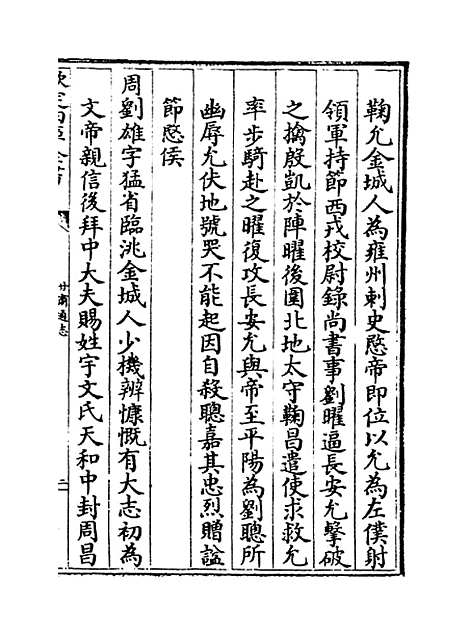 鞠允金城人為雍州刺史愍帝即位以允為左僕射
領軍持節西戎校尉錄尚書事劉曜逼長安允擊破
之擒殷凱於陣曜後圍北地太守鞠昌遣使求救允
率步騎赴之曜復攻長安允與帝至平陽為劉聰所
幽辱允伏地號哭不能起因自殺聰嘉其忠烈贈諡
節愍侯
周劉雄字猛省臨洮金城人少機辨慷慨有大志初為
文帝親信後拜中大夫賜姓宇文氏天和中封周昌
欽定四庫全書
甘肅通志
二